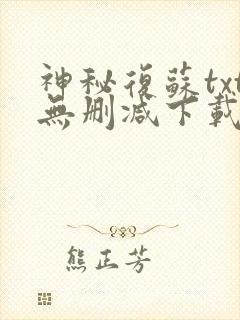 神秘復蘇txt
無刪减下載
熊正芳